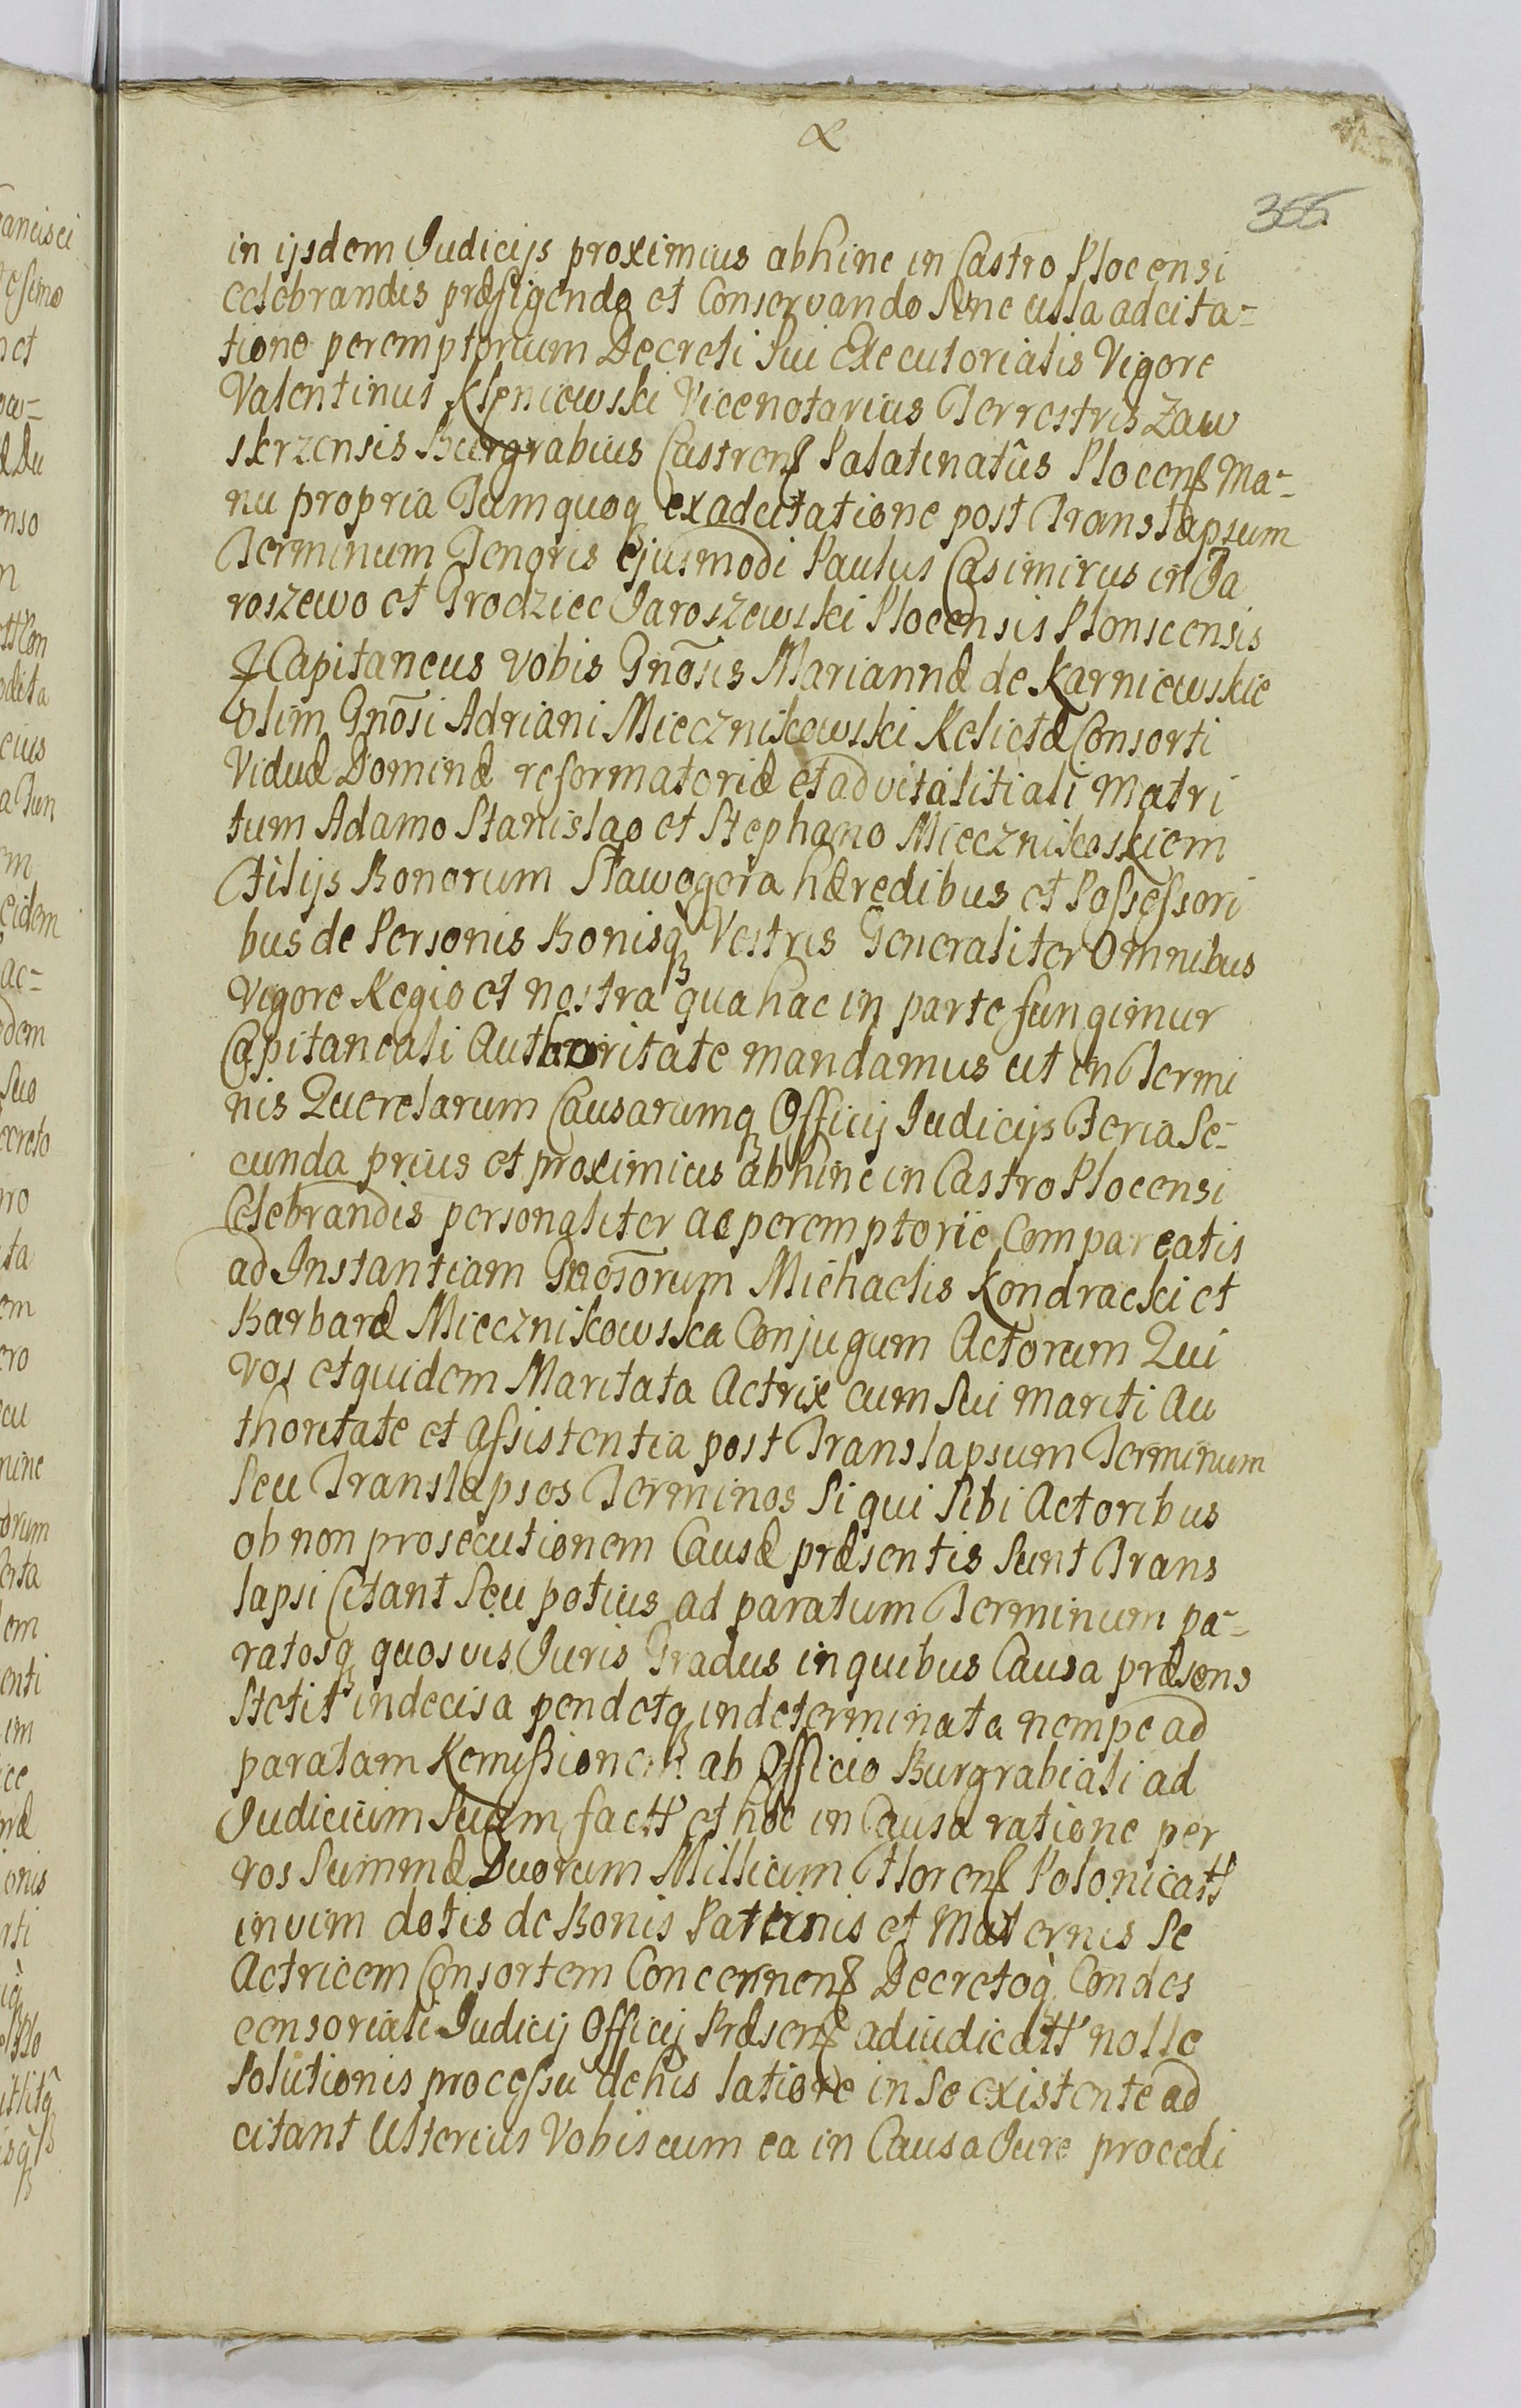 355
in ijsdem Judicijs proximius abhinc in Castro Plocensi
celebrandis præfigendo et Conservando sine ulla adcita-
tione peremptorium Decreti sui Executorialis Vigore
Valentinus Kleniewski Vicenotarius Terrestris Zaw
skrzensis Burgrabius Castrens Palatinatûs Plocens Ma-
nu propria Tum quoq ex adcitatione post Translapsum
Terminum Tenoris ejusmodi Paulus Casimirus in Ja
roszewo et Grodziec Jaroszewski Plocensis Plonscensis
Capitaneus vobis Gnōsis Mariannæ de Karniewskie
olim Gnōsi Adriani Miecznikowski Relictæ Consorti
Viduæ Dominæ reformatoriæ et advitalitiali Matri
tum Adamo Stanislao et Stephano Mieczniko skiem
Filijs Bonorum Sławogora hæredibus et Possessori
bus de Personis Bonisq Vestris Generaliter Omnibus
Vigore Regio et nostra qua hac in parte fungimur
Capitaneali Authoritate mandamus ut in Termi
nis Querelarum Causarumq Officij Judicijs Feria Se-
cunda prius et proximius abhinc in Castro Plocensi
Celebrandis personaliter ac peremptorie Compareatis
ad Instantiam Gnosōrum Michaelis Kondracki et
Barbaræ Miecznikowska Conjugum Actorum Qui
vos et quidem Maritata Actrix cum sui mariti Au
thoritate et assistentia post Translapsum Terminum
seu Translapsos Terminos si qui sibi Actoribus
ob non prosecutionem Causæ præsentis sunt Trans
lapsi Citant seu potius ad paratum Terminum pa-
ratosq quosvis Juris Gradus in quibus Causa præsens
stetit indecisa pendetq indeterminata nempe ad
paratam Remissionem ab Officio Burgrabiali ad
Judicium suum fact et hoc in Causa ratione per
vos summæ Duorum Millium Florens Polonicatt
in vim dotis de Bonis Paternis et Maternis se
Actricem Consortem Concernens Decretoq Condes
censoriali Judicij Officij Præsens adiudicatt nolle
solutionis processu de his latiore in se existente ad
citant Ulterius Vobiscum ea in Causa Jure procedi